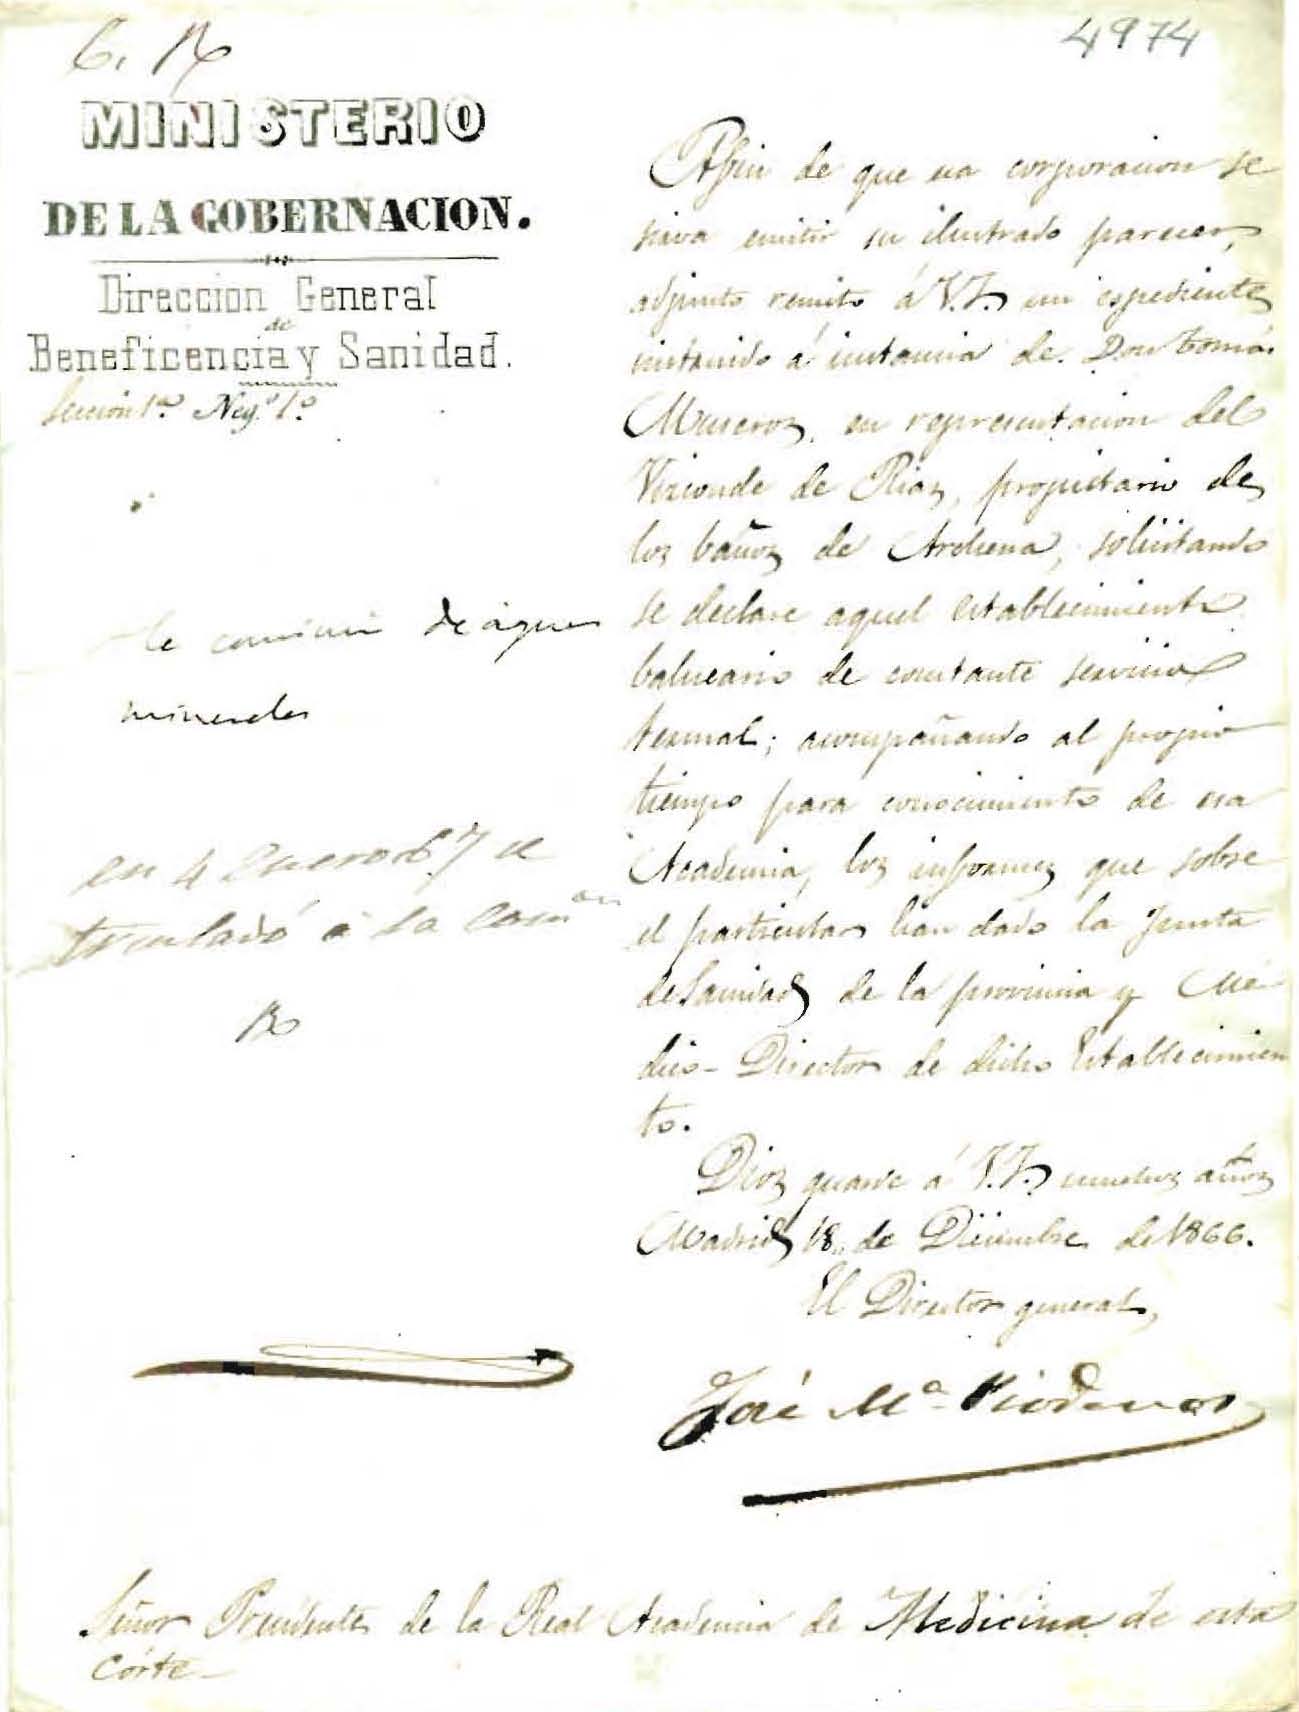 4974
MINISTERIO
DE LA GOBERNACION.
Direccion General
de
Beneficencia y Sanidad.
Seccion 1ª Neg.º 1.º
Afin de que esa corporacion se
sirva emitir su ilustrado parecer,
adjunto remito á V.I. un espediente
instruido á instancia de Don Tomás
Museros, en representacion del
Vizconde de Rias, propietario de
los baños de Archena, solicitando
se declare aquel establecimiento
balneario de constante servicio
termal; acompañando al propio
tiempo para conocimiento de esa
Academia, los informes que sobre
el particular han dado la Junta
de Sanidad de la provincia y Mé-
dico-Director de dicho Establecimien
to.
Dios guarde á V.I. muchos años
Madrid 18 de Diciembre de 1866.
El Director general,
José Mª Rodenas
de aguas
minerales
en 4 Enero 67 se
trasladó á la Comⁱᵒⁿ
Señor Presidente de la Real Academia de Medicina de esta
Córte